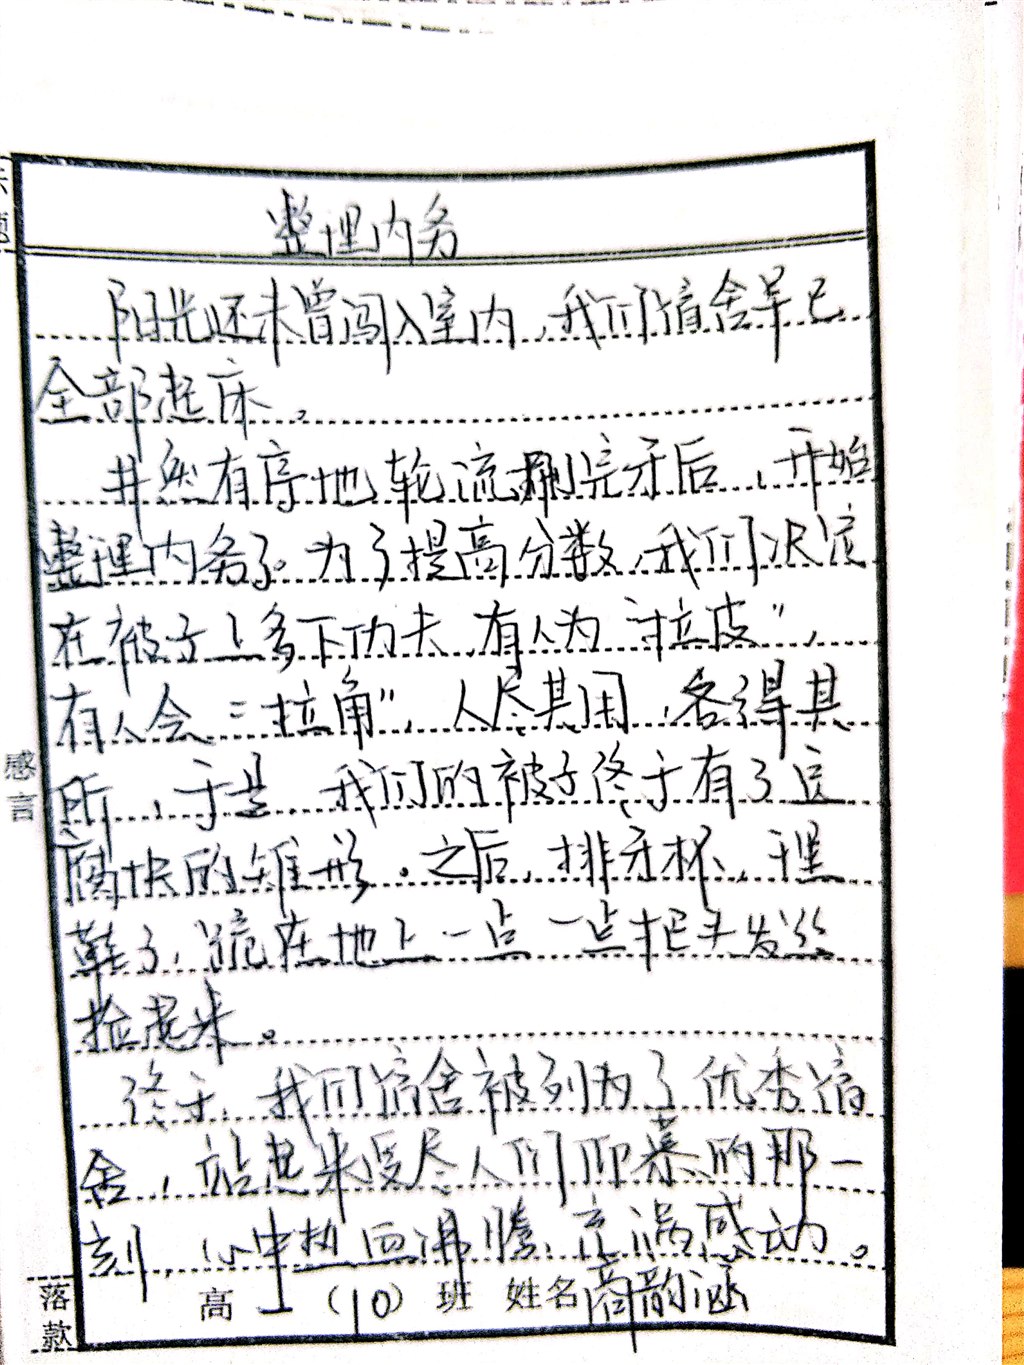 整理内务
阳光还未曾闯入室内,我们宿舍早已
全部起床。
井然有序地轮流刷完牙后,开始
整理内务了。为了提高分数,我们决定
在被子上多下功夫,有人为“拉皮”,
有人会“拉角”,人尽其用,各得其
所,于是,我们的被子终于有了豆
腐块的雏形。之后,排牙杯,理
鞋子,跪在地上一点一点把头发丝
捡起来。
终于,我们宿舍被列为了优秀宿
舍,站起来受尽人们仰慕的那一
刻,心中热血沸腾,充满感动。
感言
落款
高一(10)班 姓名商韵涵